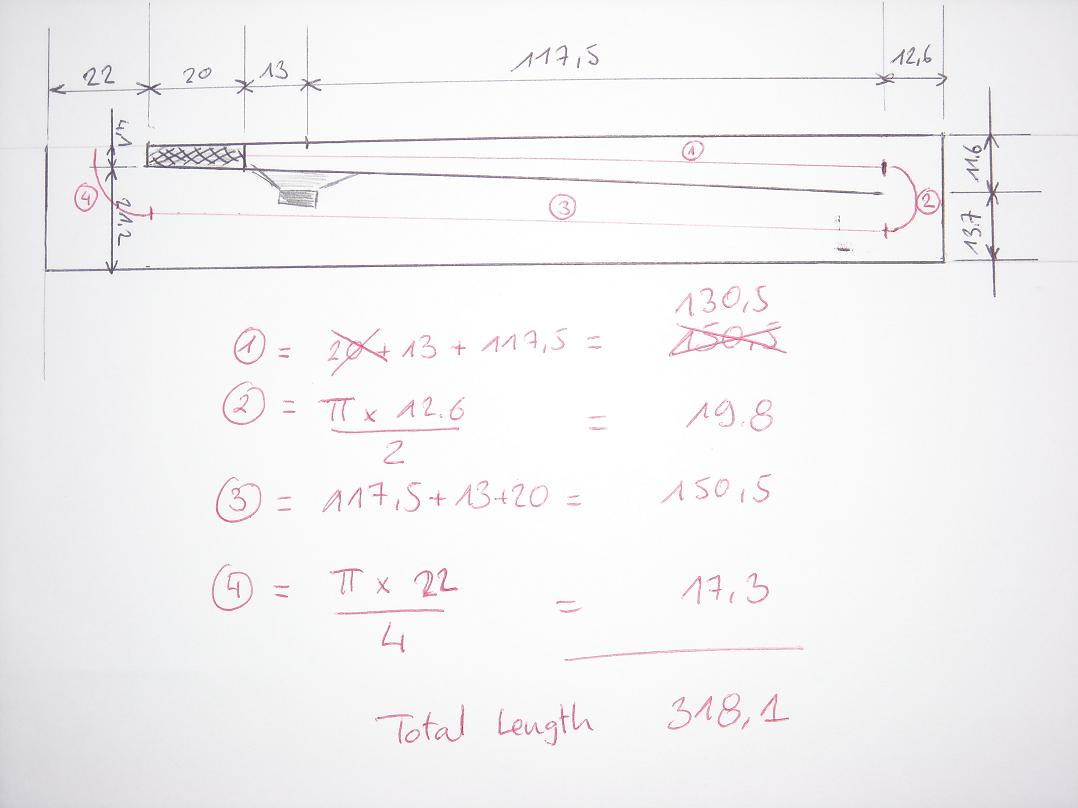 22 20 13 117,5 12,6
4,1
①
11.6
④
②
③
21,2
13.7
130,5
① = 20 + 13 + 117,5 = 150,5
② = π x 12.6 = 19.8
2
③ = 117,5 + 13 + 20 = 150,5
④ = π x 22 = 17,3
4
Total Length 318,1